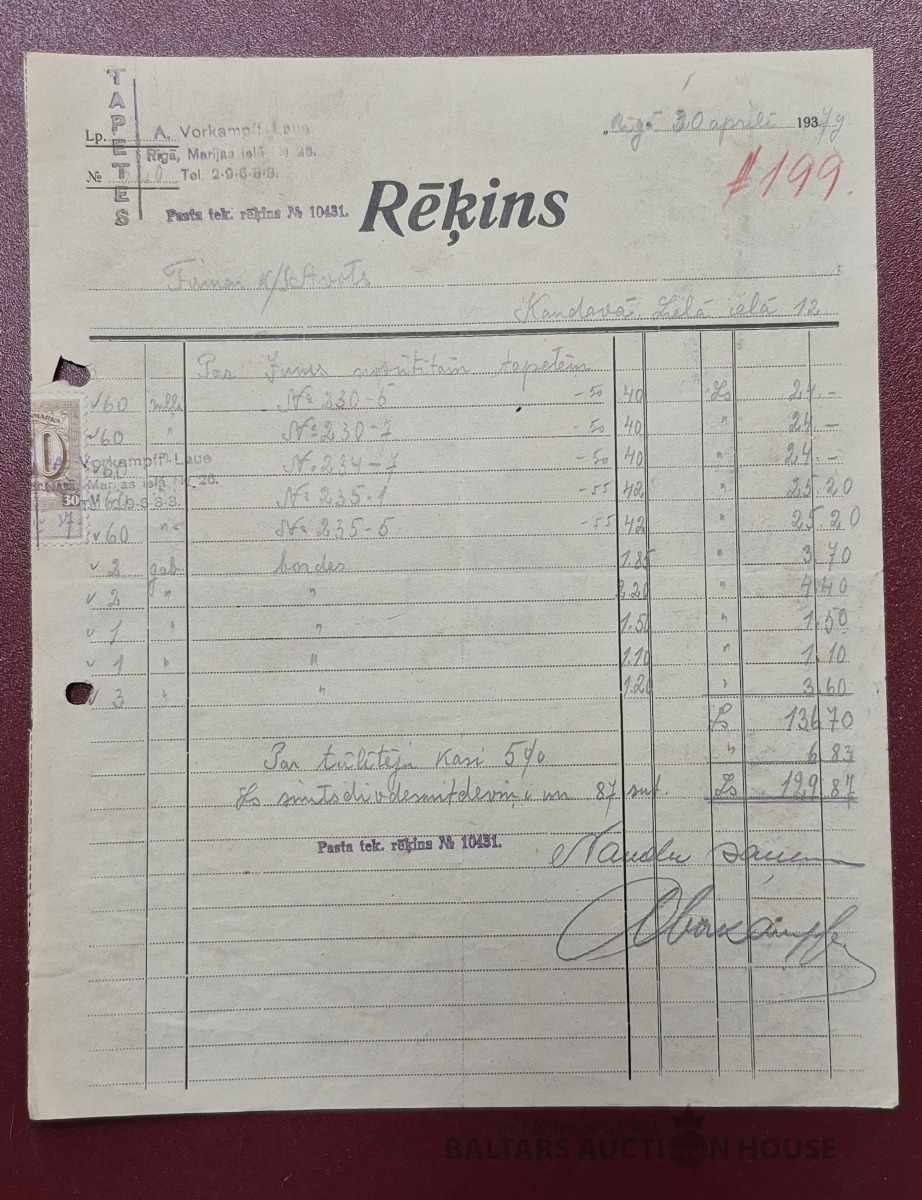 TAPETES
Lp. A. Vorkampff-Laue
Rīgā, Marijas ielā № 28.
№ Tel. 2-9-6-8-8.
Pasta tek. rēķins № 10431.
"Rīgā 30 aprīlī 193
# 199.
Rēķins
Firmai k/S Avots
Kandavā. Lielā ielā 12
Par Jums nosūtītām tapetēm
√ 60 № 230-5 -50 40 Ls 24.-
√ 60 " № 230-7 -50 40 " 24.-
√ 60 № 234-7 -50 40 " 24.-
√ 60 № 235-1 -55 42 " 25.20
√ 60 " № 235-5 -55 42 " 25.20
√ 2 gab. bordes 1.85 " 3.70
√ 2 " " 2.20 " 4.40
√ 1 " " 1.50 " 1.50
√ 1 " " 1.10 " 1.10
√ 3 " " 1.20 " 3.60
Ls 136 70
Par tūlītēju kasi 5% " 6.83
Ls simtsdivdesmitdeviņi un 87 sant. Ls 129.87
Pasta tek. rēķins № 10431.
Naudu saņēmu
A. Vorkampff-Laue
Rīgā, Marijas ielā № 28.
30
antiques and art
BALTARS AUCTION HOUSE